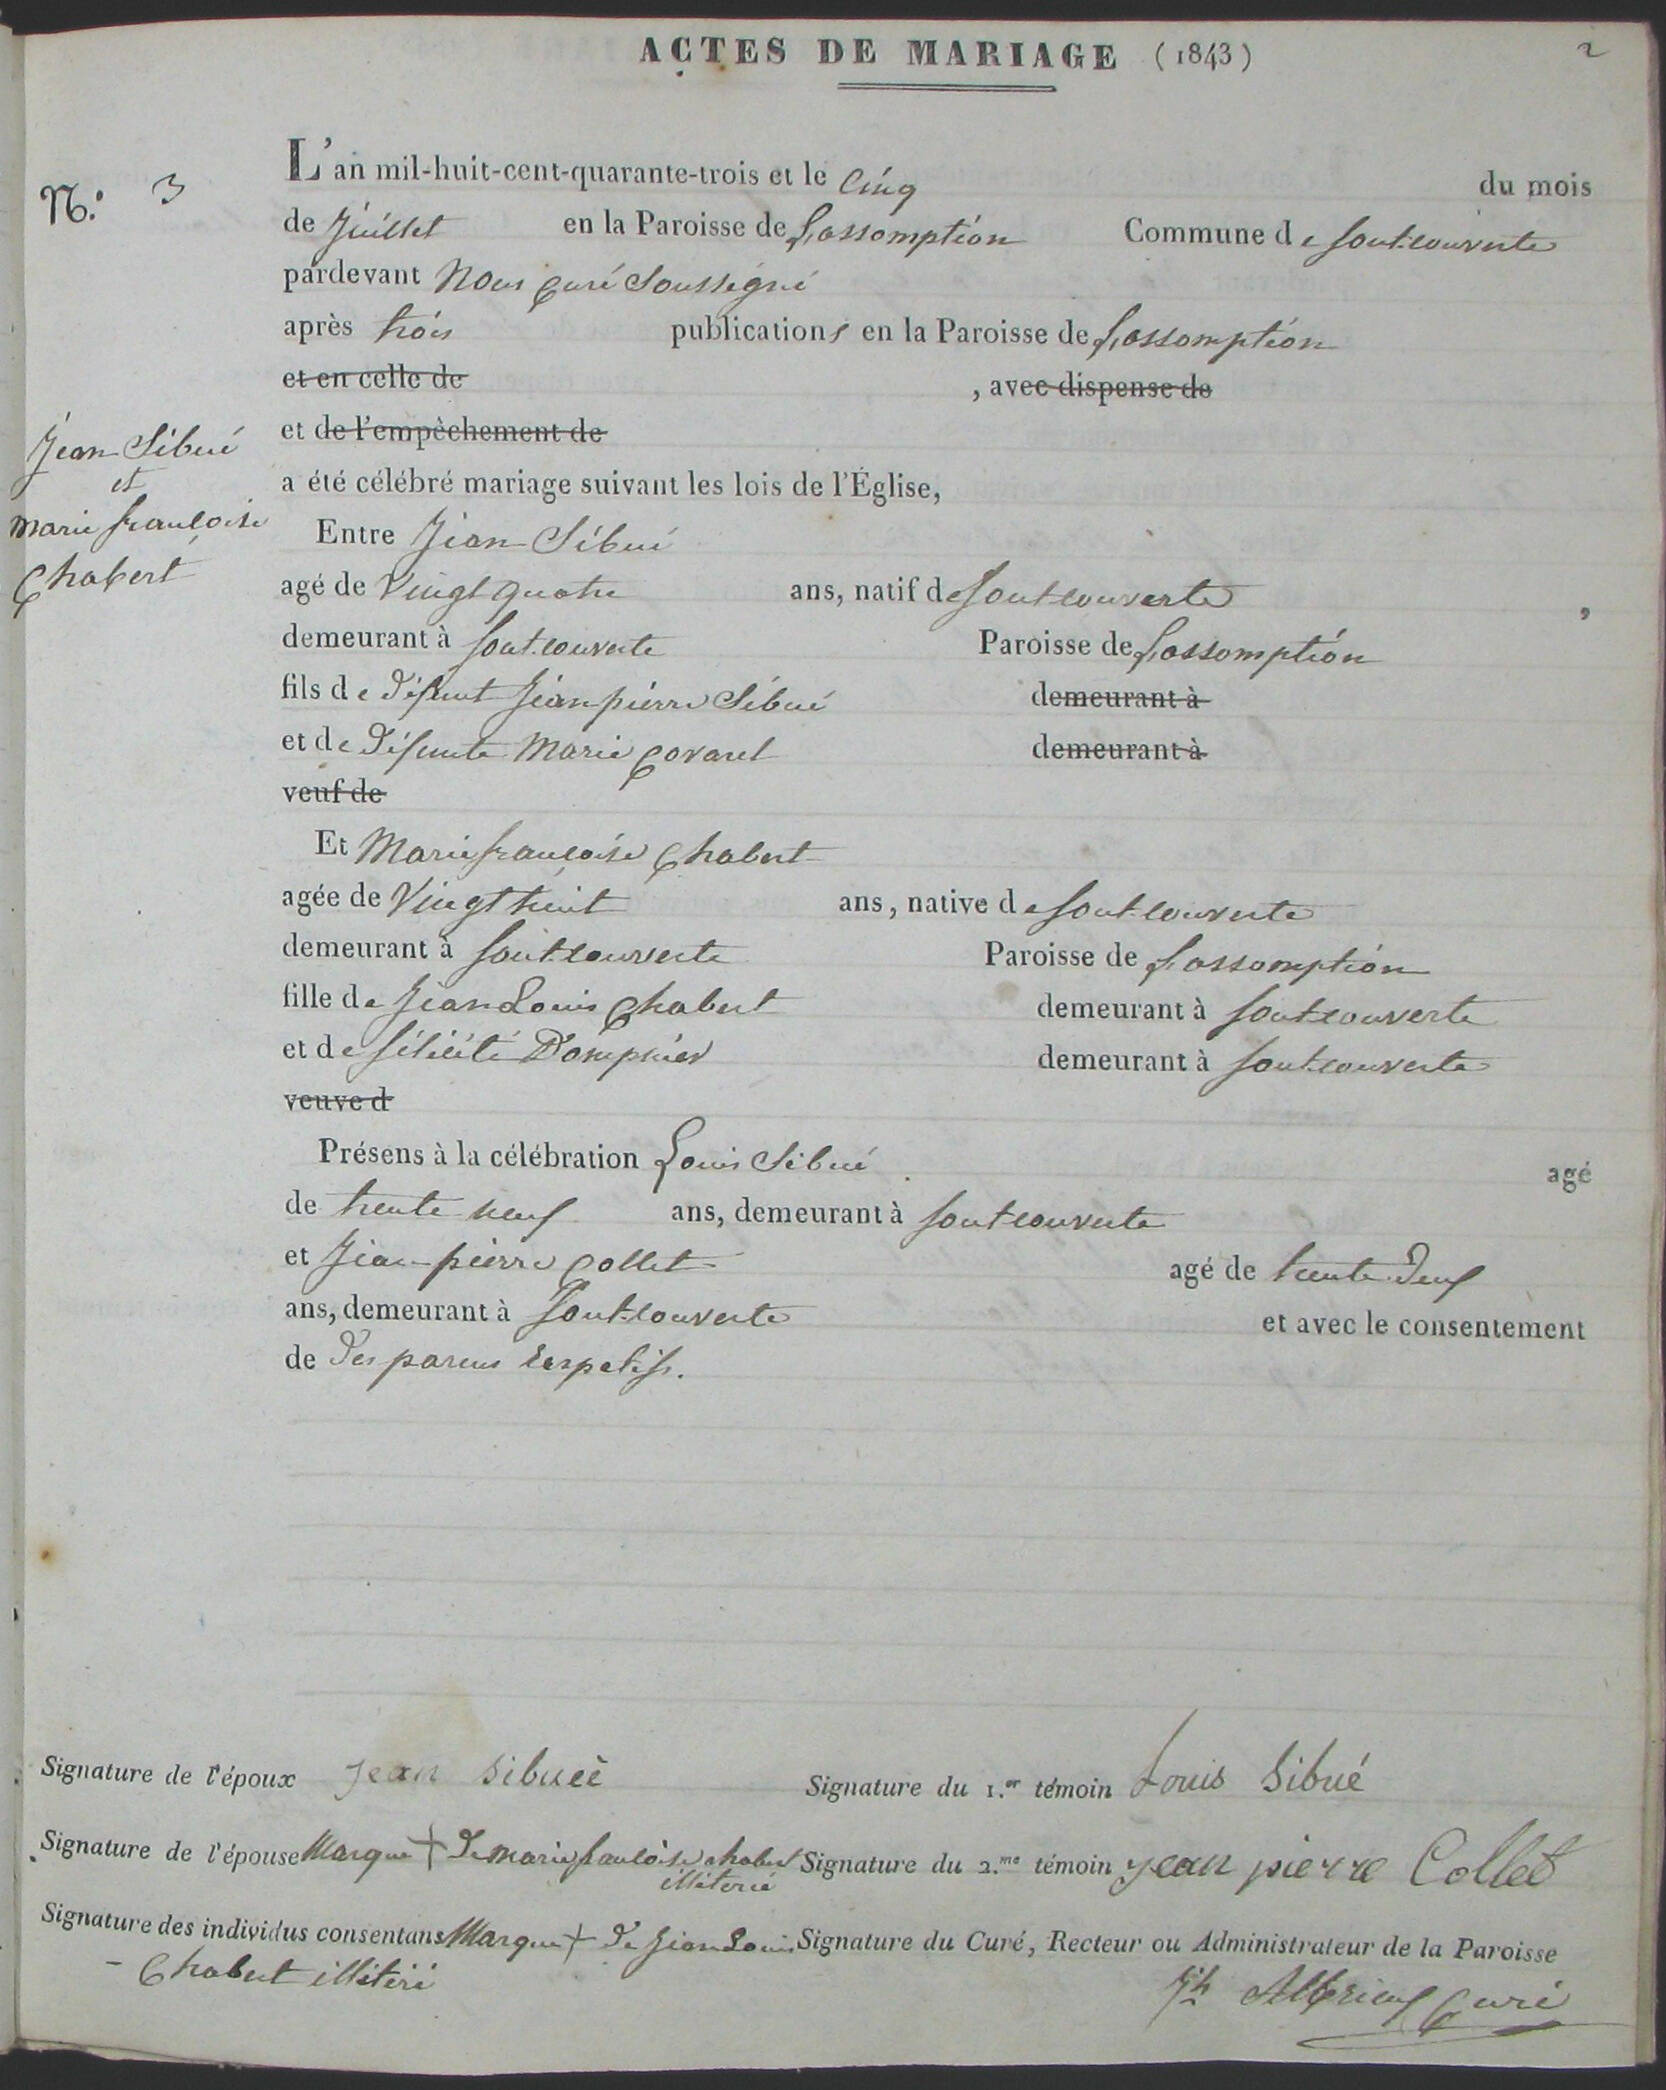 ACTES DE MARIAGE (1843)
2
N.° 3
L'an mil-huit-cent-quarante-trois et le Cinq du mois
de Juillet en la Paroisse de L'assomption Commune de fontcouverte
pardevant Nous Curé Soussigné
après trois publications en la Paroisse de L'assomption
et en celle de , avec dispense de
et de l'empêchement de
a été célébré mariage suivant les lois de l'Église,
Jean Sibué
et
marie françoise
Chabert
Entre Jean Sibué
agé de Vingt quatre ans, natif de fontcouverte ,
demeurant à fontcouverte Paroisse de L'assomption
fils de Défunt Jean pierre Sibué demeurant à
et de Défunte Marie Covarel demeurant à
veuf de
Et Marie françoise Chabert
agée de Vingt huit ans, native de fontcouverte
demeurant à fontcouverte Paroisse de L'assomption
fille de Jean Louis Chabert demeurant à fontcouverte
et de félicité Dompnier demeurant à fontcouverte
veuve d
Présens à la célébration Louis Sibué agé
de trente neuf ans, demeurant à fontcouverte
et Jean pierre Collet agé de trente Deux
ans, demeurant à fontcouverte et avec le consentement
de Des parens
Signature de l'époux Jean Sibueè Signature du 1.er témoin Louis Sibué
Signature de l'épouse Marque + De marie françoise chabert Signature du 2.me témoin jean pierre Collet
illiterée
Signature des individus consentans Marque + De Jean Louis Signature du Curé, Recteur ou Administrateur de la Paroisse
Chabert illitéré
Jh Albrieux Curé